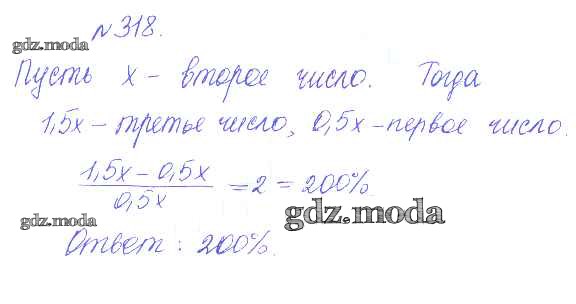 №318.
gdz.moda
Пусть x – второе число. Тогда
1,5x – третье число, 0,5x – первое число.
(1,5x – 0,5x) / 0,5x = 2 = 200%
gdz.moda
gdz.moda
Ответ: 200%.